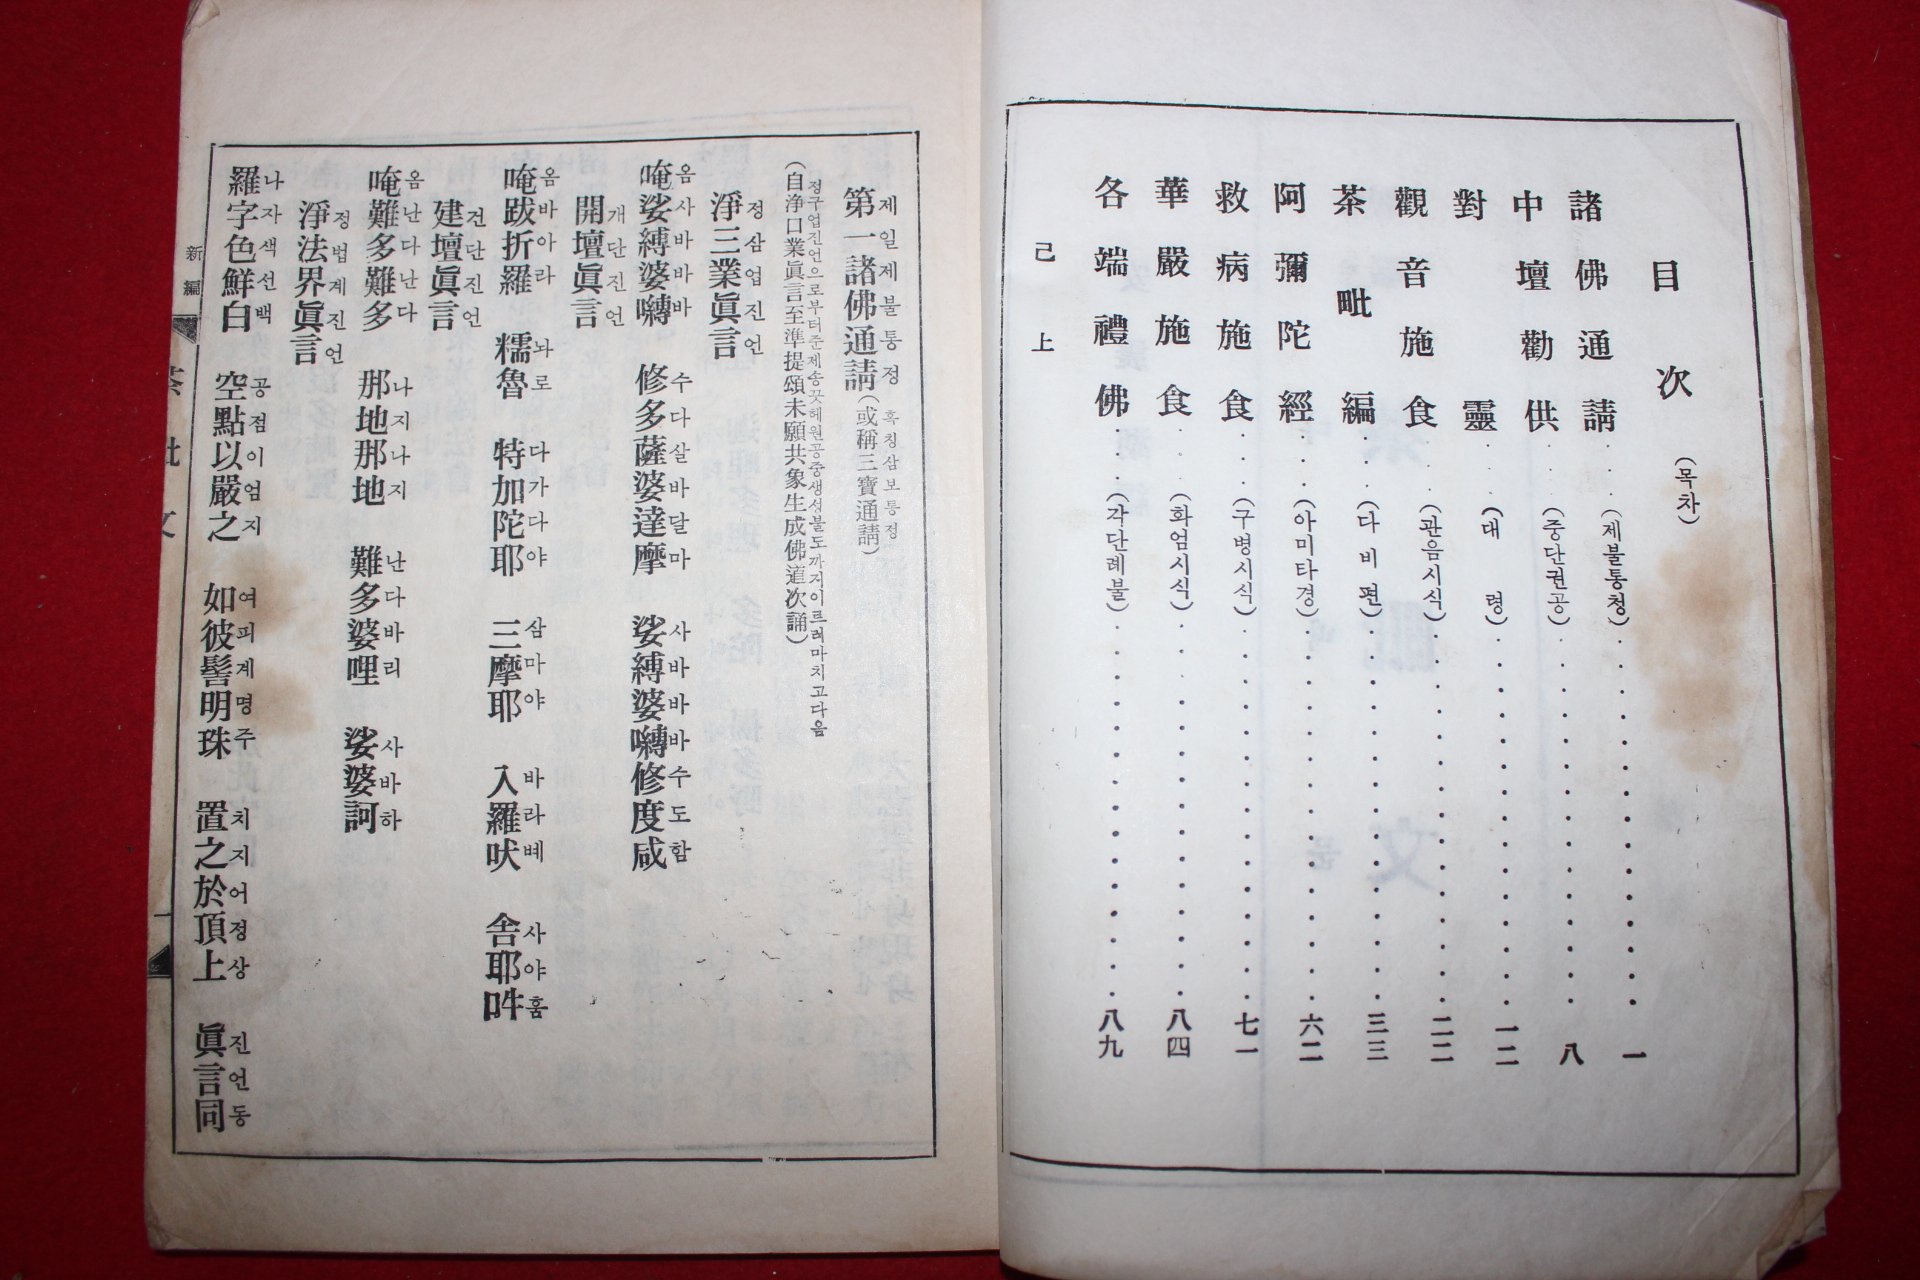 目次 (목차)
諸佛通請 (제불통청) 一
中壇勸供 (중단권공) 八
對靈 (대령) 一二
觀音施食 (관음시식) 二二
茶毗編 (다비편) 三三
阿彌陀經 (아미타경) 六二
救病施食 (구병시식) 七一
華嚴施食 (화엄시식) 八四
各端禮佛 (각단례불) 八九
己上
제일제불통정 혹칭삼보통정
第一諸佛通請(或稱三寶通請)
정구업진언으로부터준제송끗헤원공중생성불도까지이르러마치고다음
(自净口業眞言至準提頌未願共象生成佛道次誦)
정삼업진언
淨三業眞言
옴사바바바 수다살바달마 사바바바바수도함
唵娑縛婆囀 修多薩婆達摩 娑縛婆囀修度咸
개단진언
開壇眞言
옴바아라 놔로 다가다야 삼마야 바라볘 사야훔
唵跋折羅 糯魯 特加陀耶 三摩耶 入羅吠 舍耶吽
건단진언
建壇眞言
옴난다난다 나지나지 난다바리 사바하
唵難多難多 那地那地 難多婆哩 娑婆訶
정법계진언
淨法界眞言
나자색선백 공점이엄지 여피계명주 치지어정상 진언동
羅字色鮮白 空點以嚴之 如彼髻明珠 置之於頂上 眞言同
新編
一